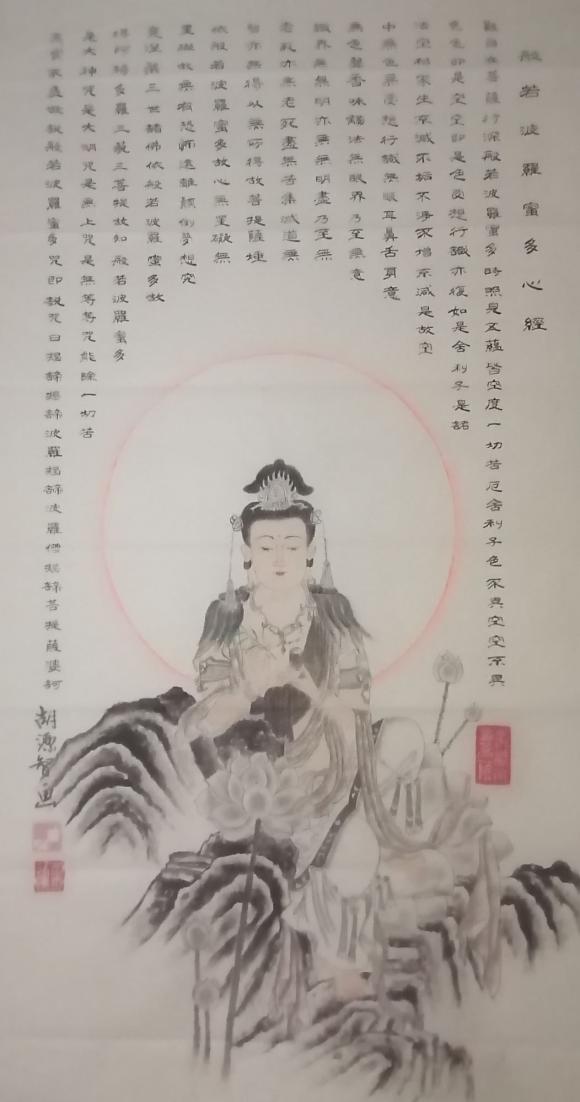 般若波羅蜜多心經
觀自在菩薩行深般若波羅蜜多時照見五蘊皆空度一切苦厄舍利子色不異空空不異
色色即是空空即是色受想行識亦復如是舍利子是諸
法空相不生不滅不垢不淨不增不減是故空
中無色無受想行識無眼耳鼻舌身意
無色聲香味觸法無眼界乃至無意
識界無無明亦無無明盡乃至無
老死亦無老死盡無苦集滅道無
智亦無得以無所得故菩提薩埵
依般若波羅蜜多故心無罣礙無
罣礙故無有恐怖遠離顛倒夢想究
竟涅槃三世諸佛依般若波羅蜜多故
得阿耨多羅三藐三菩提故知般若波羅蜜多
是大神咒是大明咒是無上咒是無等等咒能除一切苦
真實不虛故說般若波羅蜜多咒即說咒曰揭諦揭諦波羅揭諦波羅僧揭諦菩提薩婆訶
胡源智画